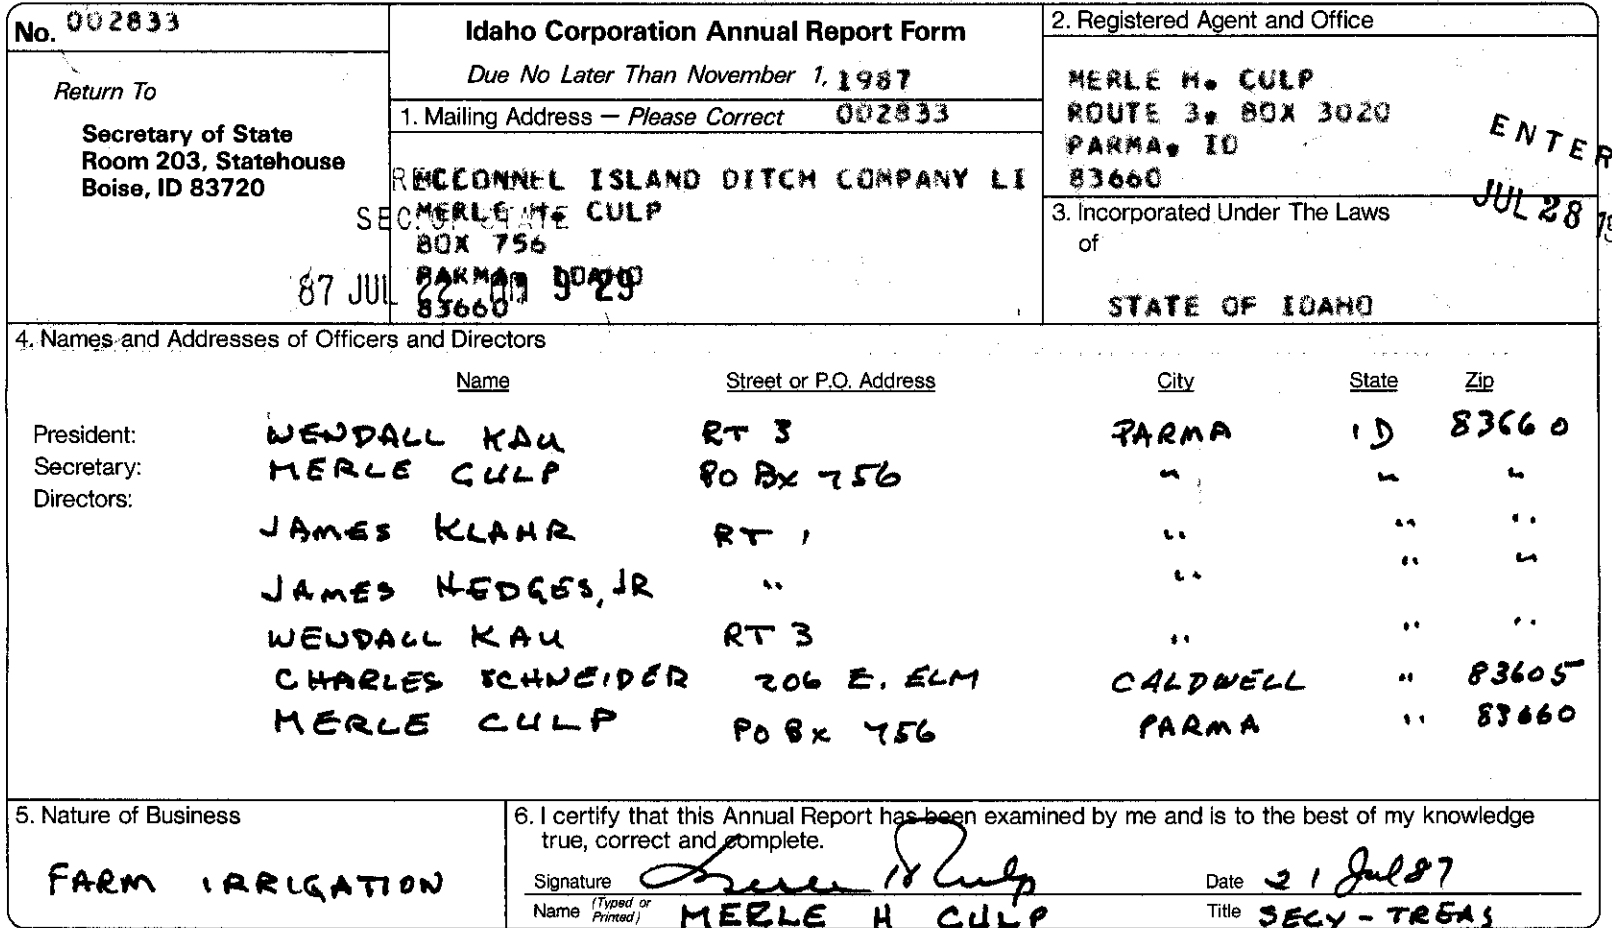 No. 002833
Return To
Secretary of State
Room 203, Statehouse
Boise, ID 83720
Idaho Corporation Annual Report Form
Due No Later Than November 1, 1987
1. Mailing Address — Please Correct 002833
MCCONNEL ISLAND DITCH COMPANY LI
MERLE H. CULP
BOX 756
PARMA, IDAHO
83660
SEC. OF STATE
87 JUL 22 9 29
2. Registered Agent and Office
MERLE H. CULP
ROUTE 3, BOX 3020
PARMA, ID
83660
ENTER
JUL 28 19
3. Incorporated Under The Laws
of
STATE OF IDAHO
4. Names and Addresses of Officers and Directors
Name Street or P.O. Address City State Zip
President: WENDALL KAU RT 3 PARMA ID 83660
Secretary: MERLE CULP PO BX 756 " " "
Directors:
JAMES KLAHR RT 1 " " "
JAMES HEDGES, JR " " " "
WENDALL KAU RT 3 " " "
CHARLES SCHNEIDER 206 E. ELM CALDWELL " 83605
MERLE CULP PO BX 756 PARMA " 83660
5. Nature of Business
FARM IRRIGATION
6. I certify that this Annual Report has been examined by me and is to the best of my knowledge
true, correct and complete.
Signature Merle H Culp Date 21 Jul 87
Name (Typed or Printed) MERLE H CULP Title SECY-TREAS